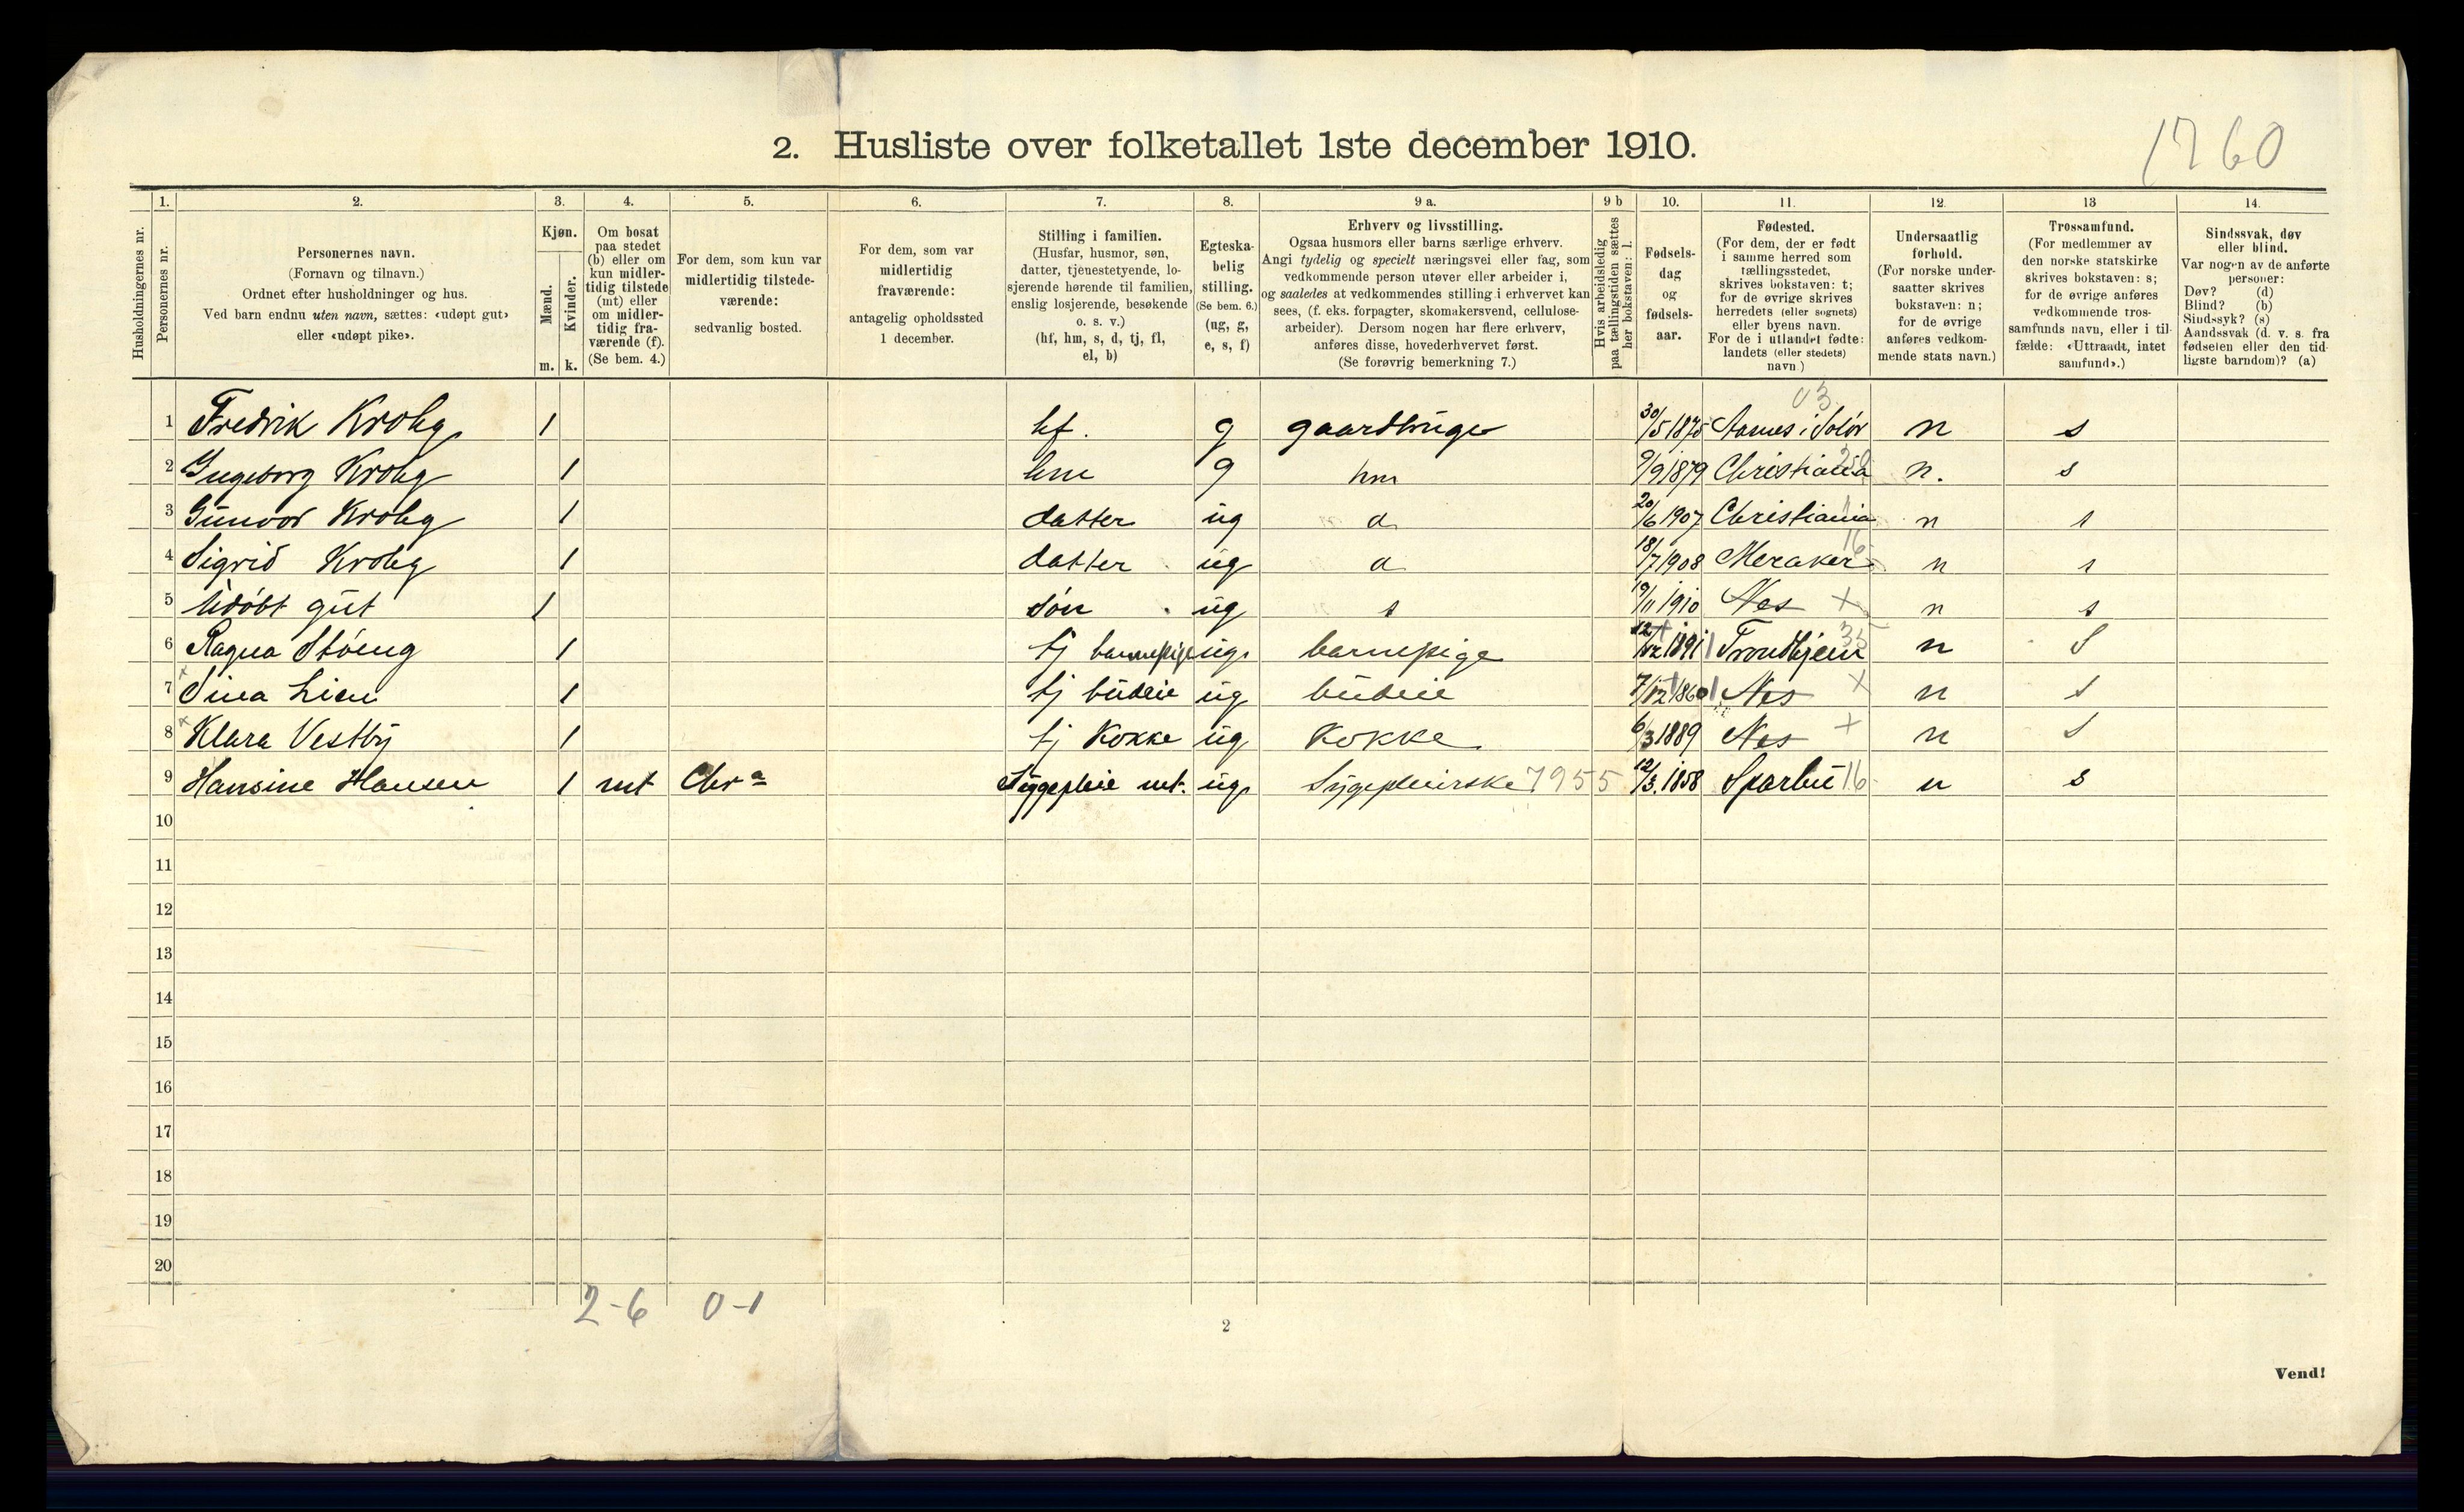 1760
2. Husliste over folketallet 1ste december 1910.
Husholdningernes nr.
1. Personernes nr.
2. Personernes navn.
(Fornavn og tilnavn.)
Ordnet efter husholdninger og hus.
Ved barn endnu uten navn, sættes: «udøpt gut»
eller «udøpt pike».
3. Kjøn.
Mænd. m.
Kvinder. k.
4. Om bosat
paa stedet
(b) eller om
kun midler-
tidig tilstede
(mt) eller
om midler-
tidig fra-
værende (f).
(Se bem. 4.)
5. For dem, som kun var
midlertidig tilstede-
værende:
sedvanlig bosted.
6. For dem, som var
midlertidig
fraværende:
antagelig opholdssted
1 december.
7. Stilling i familien.
(Husfar, husmor, søn,
datter, tjenestetyende, lo-
sjerende hørende til familien,
enslig losjerende, besøkende
o. s. v.)
(hf, hm, s, d, tj, fl,
el, b)
8. Egteska-
belig
stilling.
(Se bem. 6.)
(ug, g,
e, s, f)
9 a. Erhverv og livsstilling.
Ogsaa husmors eller barns særlige erhverv.
Angi tydelig og specielt næringsvei eller fag, som
vedkommende person utøver eller arbeider i,
og saaledes at vedkommendes stilling i erhvervet kan
sees, (f. eks. forpagter, skomakersvend, cellulose-
arbeider). Dersom nogen har flere erhverv,
anføres disse, hovederhvervet først.
(Se forøvrig bemerkning 7.)
9 b Hvis arbeidsledig
paa tællingstiden sættes
her bokstaven: l.
10. Fødsels-
dag
og
fødsels-
aar.
11. Fødested.
(For dem, der er født
i samme herred som
tællingsstedet,
skrives bokstaven: t;
for de øvrige skrives
herredets (eller sognets)
eller byens navn.
For de i utlandet fødte:
landets (eller stedets)
navn.)
12. Undersaatlig
forhold.
(For norske under-
saatter skrives
bokstaven: n;
for de øvrige
anføres vedkom-
mende stats navn.)
13 Trossamfund.
(For medlemmer av
den norske statskirke
skrives bokstaven: s;
for de øvrige anføres
vedkommende tros-
samfunds navn, eller i til-
fælde: «Uttraadt, intet
samfund».)
14. Sindssvak, døv
eller blind.
Var nogen av de anførte
personer:
Døv? (d)
Blind? (b)
Sindssyk? (s)
Aandssvak (d. v. s. fra
fødselen eller den tid-
ligste barndom)? (a)
03
1 Fredrik Krohg 1 hf. g gaardbruger 30/5 1875 Aasnes i Solør n s
2 Ingeborg Krohg 1 hm g hm 9/9 1879 Christiania n. s
3 Gunvor Krohg 1 datter ug d 20/6 1907 Christiania n s
4 Sigrid Krohg 1 datter ug d 18/7 1908 Meraker 16 n s
5 Udøbt gut 1 søn ug s 19/11 1910 Nes + n s
6 Ragna Støeng 1 tj barnepige ug. barnepige 12/12 1891 Trondhjem 35 n S
7 Sina Lien 1 tj budeie ug budeie 7/12 1860 Nes + n S
8 Klara Vestby 1 tj Kokke ug Kokke 6/3 1889 Nes + n S
9 Hansine Hansen 1 mt Chra Sygepleie mt. ug. Sygepleierske 7955 12/3. 1858 Sparbu 16 n s
10
11
12
13
14
15
16
17
18
19
20
2-6 0-1
2
Vend!